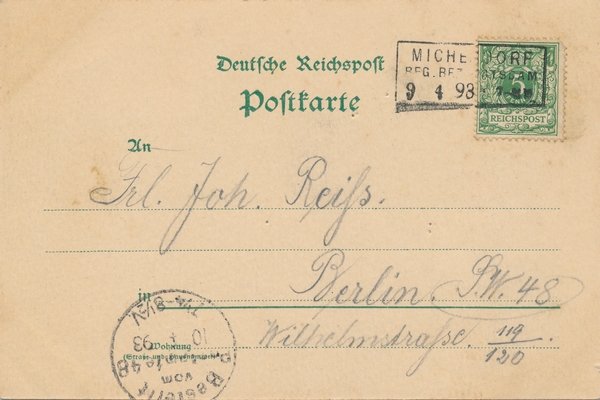 Deutsche Reichspost
Postkarte
MICHE DORF
REG. BEZ. POTSDAM
9 4 98
REICHSPOST
An
Frl. Joh. Reiss.
in Berlin. S.W. 48
Wohnung
(Straße und Hausnummer)
Wilhelmstraße. 119/120
Bestellt
vom
Postamte 48
10 4 98